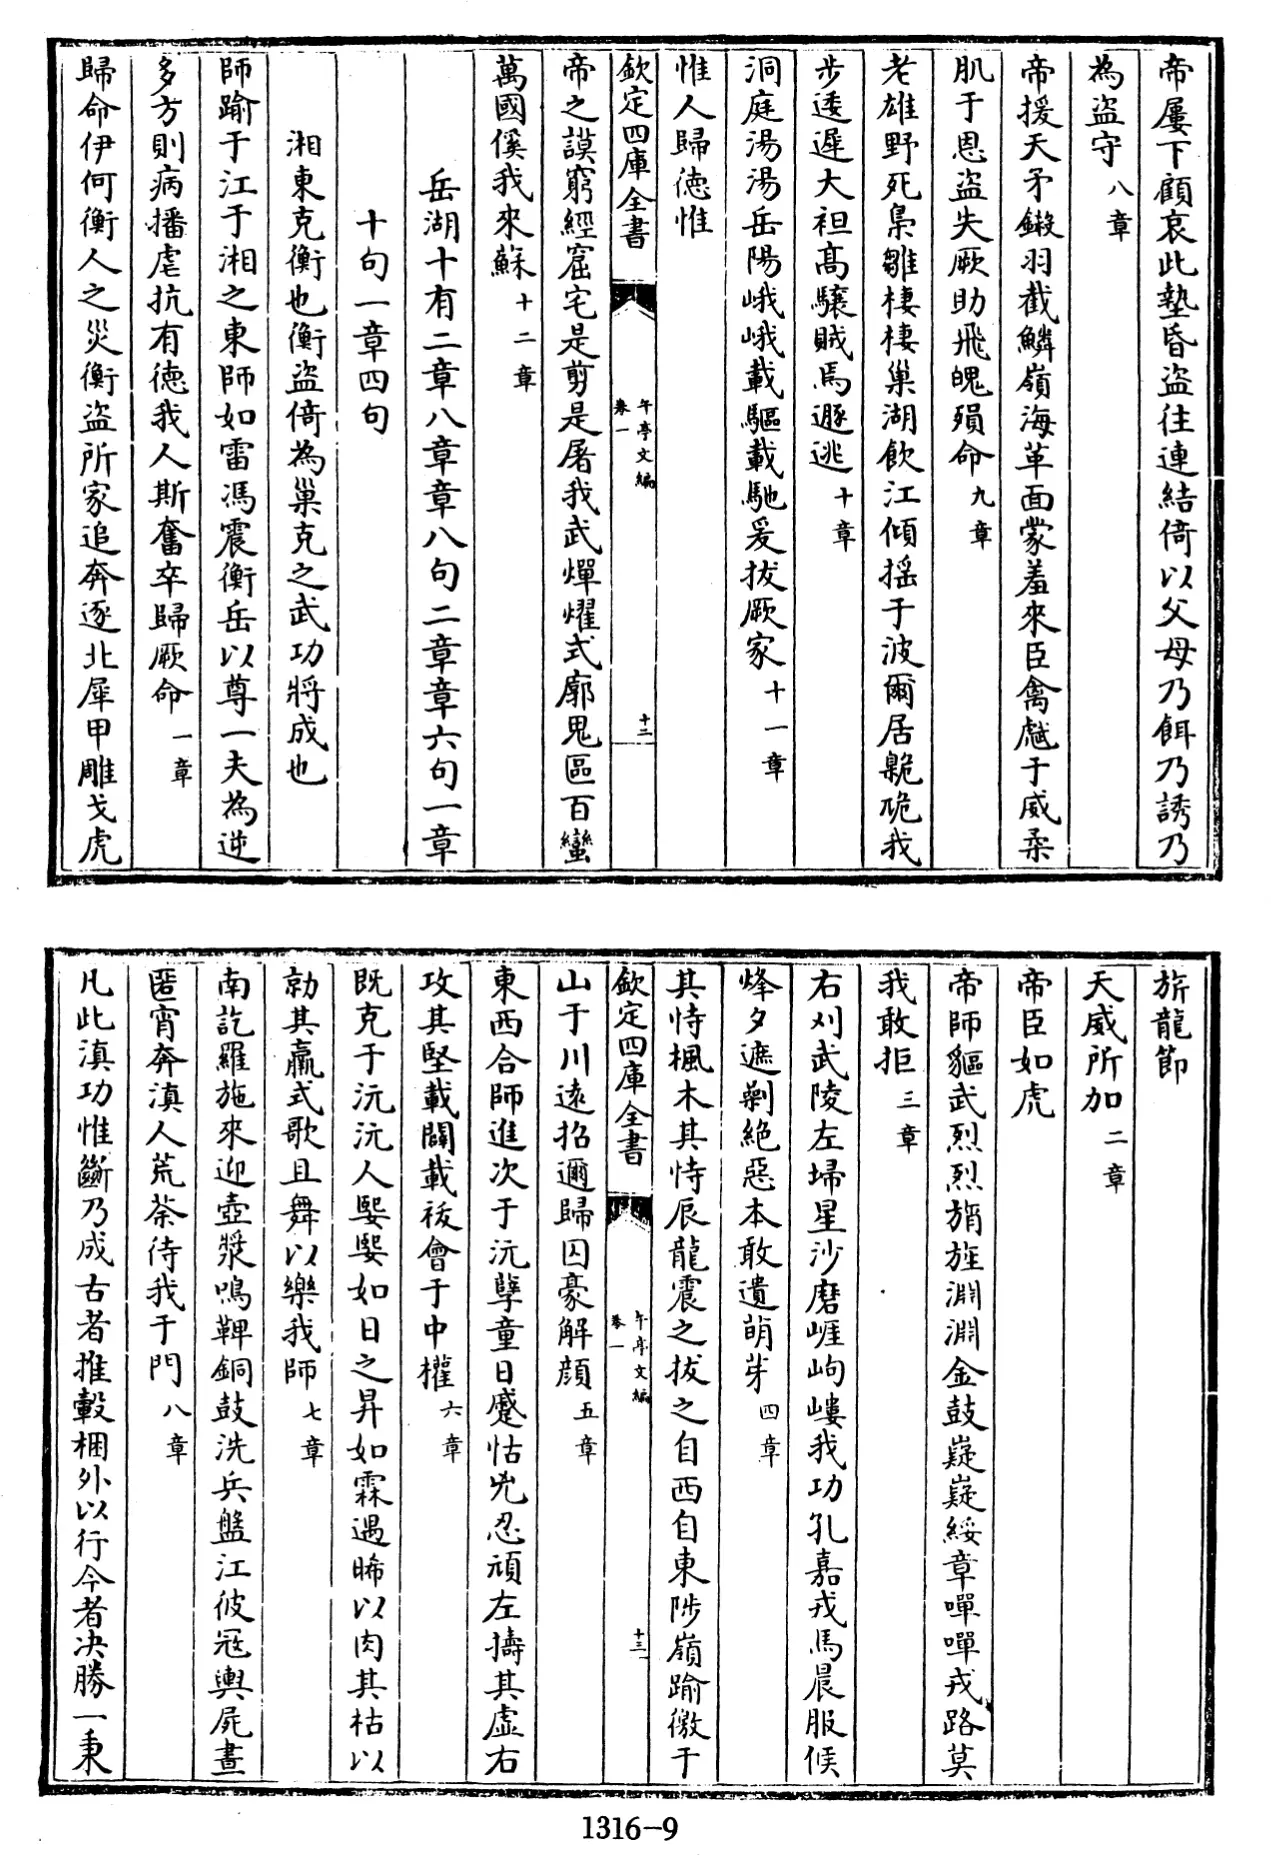 帝屢下顧哀此墊昏盜往連結倚以父母乃餌乃誘乃
為盜守八章
帝援天矛鎩羽截鱗嶺海革面蒙羞來臣禽馘于威柔
肌于恩盜失厥助飛魄殞命九章
老雄野死梟雛棲棲巢湖飲江傾搖于波爾居臲卼我
步逶遲大袒高驤賊焉遯逃十章
洞庭湯湯岳陽峨峨載驅載馳爰拔厥家十一章
惟人歸德惟
欽定四庫全書
午亭文編
卷一
十二
帝之謨窮經窟宅是剪是屠我武燀燿式廓鬼區百蠻
萬國徯我來蘇十二章
岳湖十有二章八章章八句二章章六句一章
十句一章四句
湘東克衡也衡盜倚為巢克之武功將成也
師踰于江于湘之東師如雷馮震衡岳以尊一夫為逆
多方則病播虐抗有德我人斯奮卒歸厥命一章
歸命伊何衡人之災衡盜所家追奔逐北犀甲雕戈虎
旂龍節
天威所加二章
帝臣如虎
帝師貙武烈烈旃旌淵淵金鼓嶷嶷綏章嘽嘽戎路莫
我敢拒三章
右刈武陵左埽星沙磨崕岣嶁我功孔嘉戎馬晨服候
烽夕遮剿絕惡本敢遺萌芽四章
其恃楓木其恃辰龍震之拔之自西自東陟嶺踰徼于
欽定四庫全書
午亭文編
卷一
十三
山于川遠招邇歸囚豪解顔五章
東西合師進次于沅孽童日蹙怙兇忍頑左擣其虛右
攻其堅載闢載祓會于中權六章
既克于沅沅人娶娶如日之昇如霖遇晞以肉其枯以
勍其羸式歌且舞以樂我師七章
南訖羅施來迎壺漿鳴鞞銅鼓洗兵盤江彼冦輿屍晝
匿宵奔滇人荒荼待我于門八章
凡此滇功惟斷乃成古者推轂梱外以行今者决勝一秉
1316-9